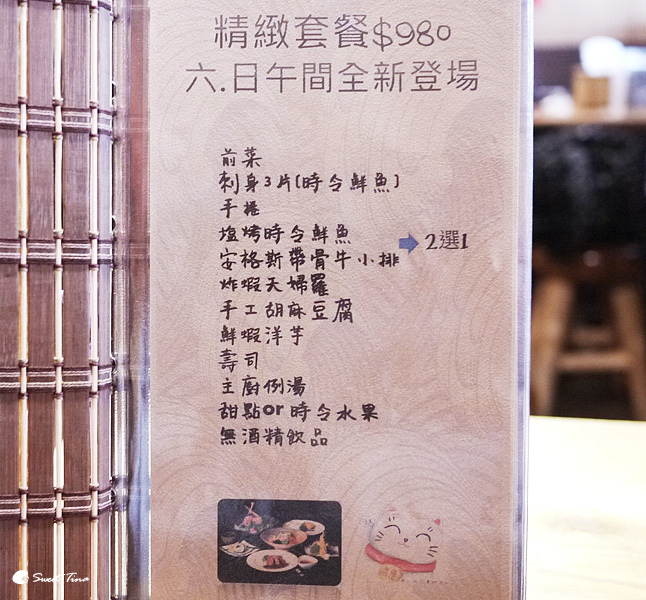 精緻套餐$980
六.日午間全新登場
前菜
刺身3片(時令鮮魚)
手捲
塩烤時令鮮魚
安格斯帶骨牛小排
2選1
炸蝦天婦羅
手工胡麻豆腐
鮮蝦洋芋
壽司
主廚例湯
甜點or時令水果
無酒精飲品
Sweet Tina